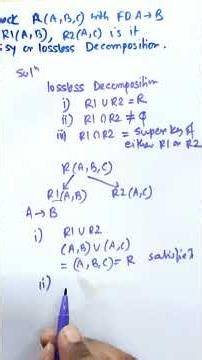 R(A,B,C) with FD A→B
R1(A,B), R2(A,C) is it
or lossless Decomposition.
Solⁿ
lossless Decomposition
i) R1 ∪ R2 = R
ii) R1 ∩ R2 ≠ φ
iii) R1 ∩ R2 = Super key of
either R1 or R2
R(A,B,C)
R1(A,B) R2(A,C)
A→B
i) R1 ∪ R2
(A,B) ∪ (A,C)
= (A,B,C) = R satisfied
ii)